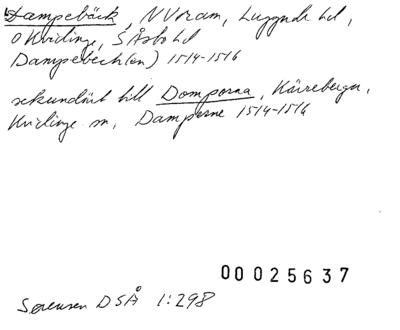 Dampebäck, N Vram, Luggude hd,
o Kvidinge, S Åsbo hd
Dampebeck(en) 1514-1516
sekundärt till Domporna, Kärreberga,
Kvidinge sn, Damperne 1514-1516
00025637
Sørensen DSÅ 1:298